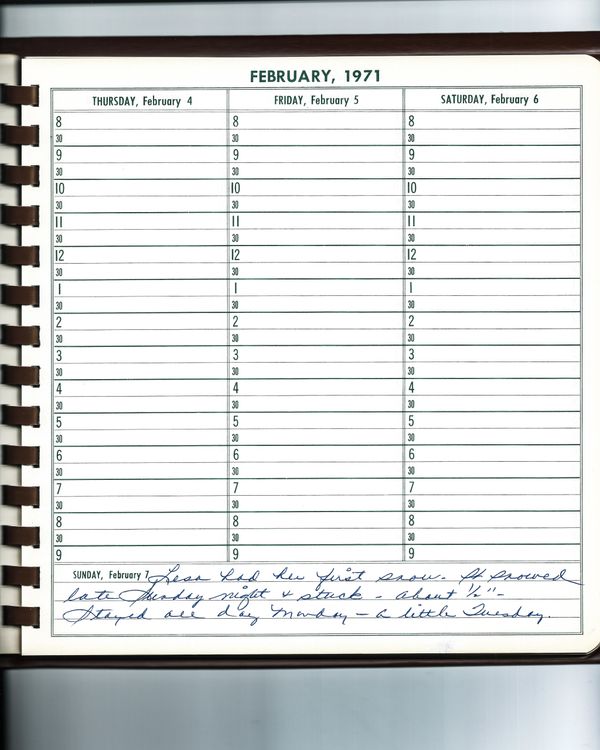 FEBRUARY, 1971
THURSDAY, February 4 FRIDAY, February 5 SATURDAY, February 6
8 8 8
30 30 30
9 9 9
30 30 30
10 10 10
30 30 30
11 11 11
30 30 30
12 12 12
30 30 30
1 1 1
30 30 30
2 2 2
30 30 30
3 3 3
30 30 30
4 4 4
30 30 30
5 5 5
30 30 30
6 6 6
30 30 30
7 7 7
30 30 30
8 8 8
30 30 30
9 9 9
SUNDAY, February 7 Lesa had her first snow. It snowed
late Sunday night & stuck - about ½" -
Stayed all day Monday - a little Tuesday.